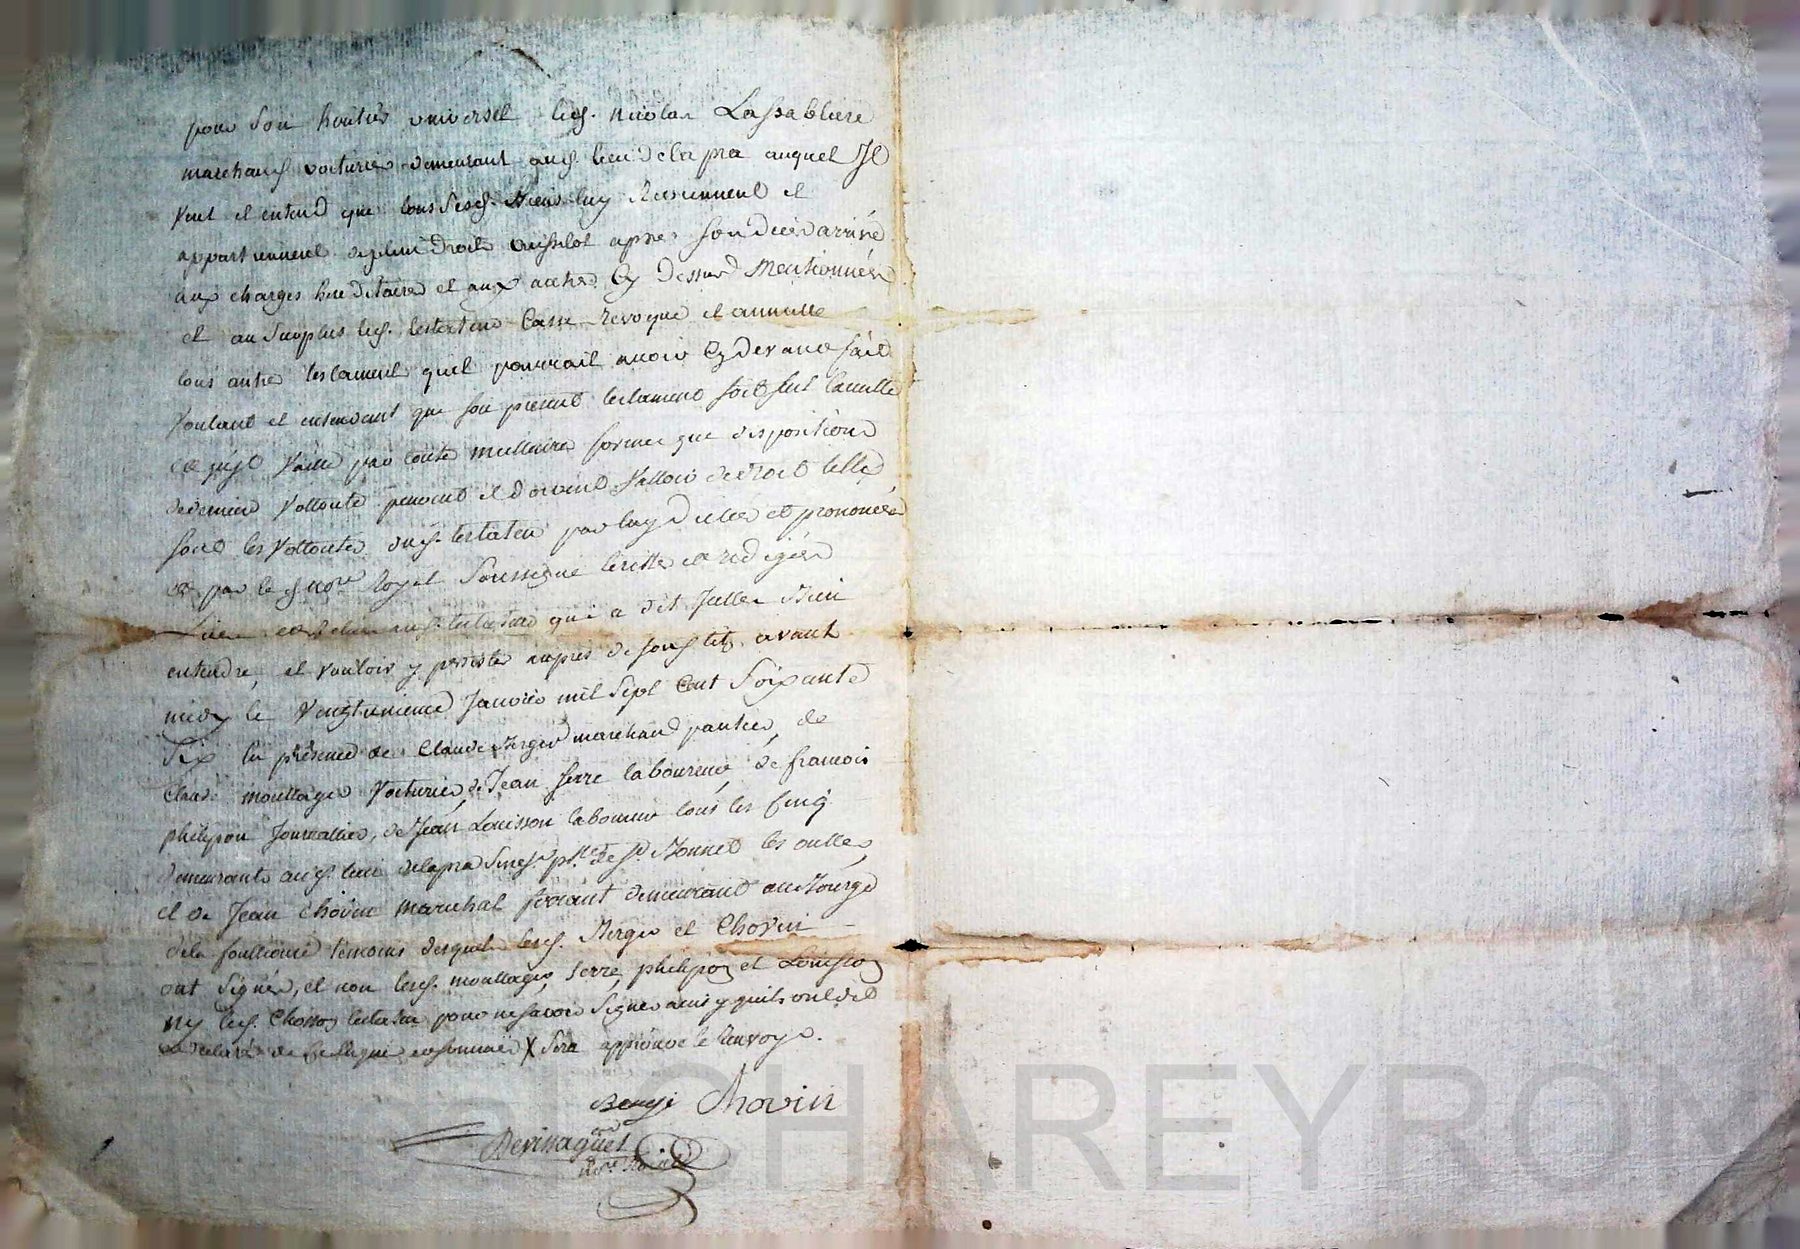 pour son heritier universel led. Nicolas Lassabliere
marchand voiturier demeurant aud. lieu de la pra auquel Il
veut et entend que tous sesd. Biens luy Reviennent et
appartiennent de plein droit aussitot apres son deces arrivé
aux charges hereditaires et aux autres Cy dessus Mentionnées
et au surplus led. testateur Casse revoque et annulle
tous autres testament quil pourrait avoir Cy devant fait
Voulant et entendant que son present testament soit seul
Vaille par toute meilleure forme que dispositions
de derniere Vollonté peuvent et doivent Valloir de droit telles
sont les Vollontés dud. testateur par luy dictées et prononcées
et par le d. no.re Royal Soussigné ecrittes et redigées
aud. testateur qui a dit Bien
entendre, et vouloir y persister avant
midy le Vingt Janvier mil sept Cent Soixante
Six En presence de Claude Berger marchand de
Claude mouttager Voiturier, de Jean Serre laboureur, de francois
philipon Journallier, de Jean Louisson laboureur tous les Cinq
demeurants aud. lieu de la pra de St. Bonnet les oulles,
et de Jean Chovin marechal ferrant demeurant au Bourg
de la fouillouse temoins desquels lesd. Berger et Chovin
ont signés, et non lesd. mouttager, Serre, philipon et Louisson
ny led. testateur pour ne savoir signer ainsy quils ont dit
et declaré de Ce Enquis X Sera approuvé le Renvoye.
Berge Chovin
Devinaguet
no.re Royal
CHAREYRON